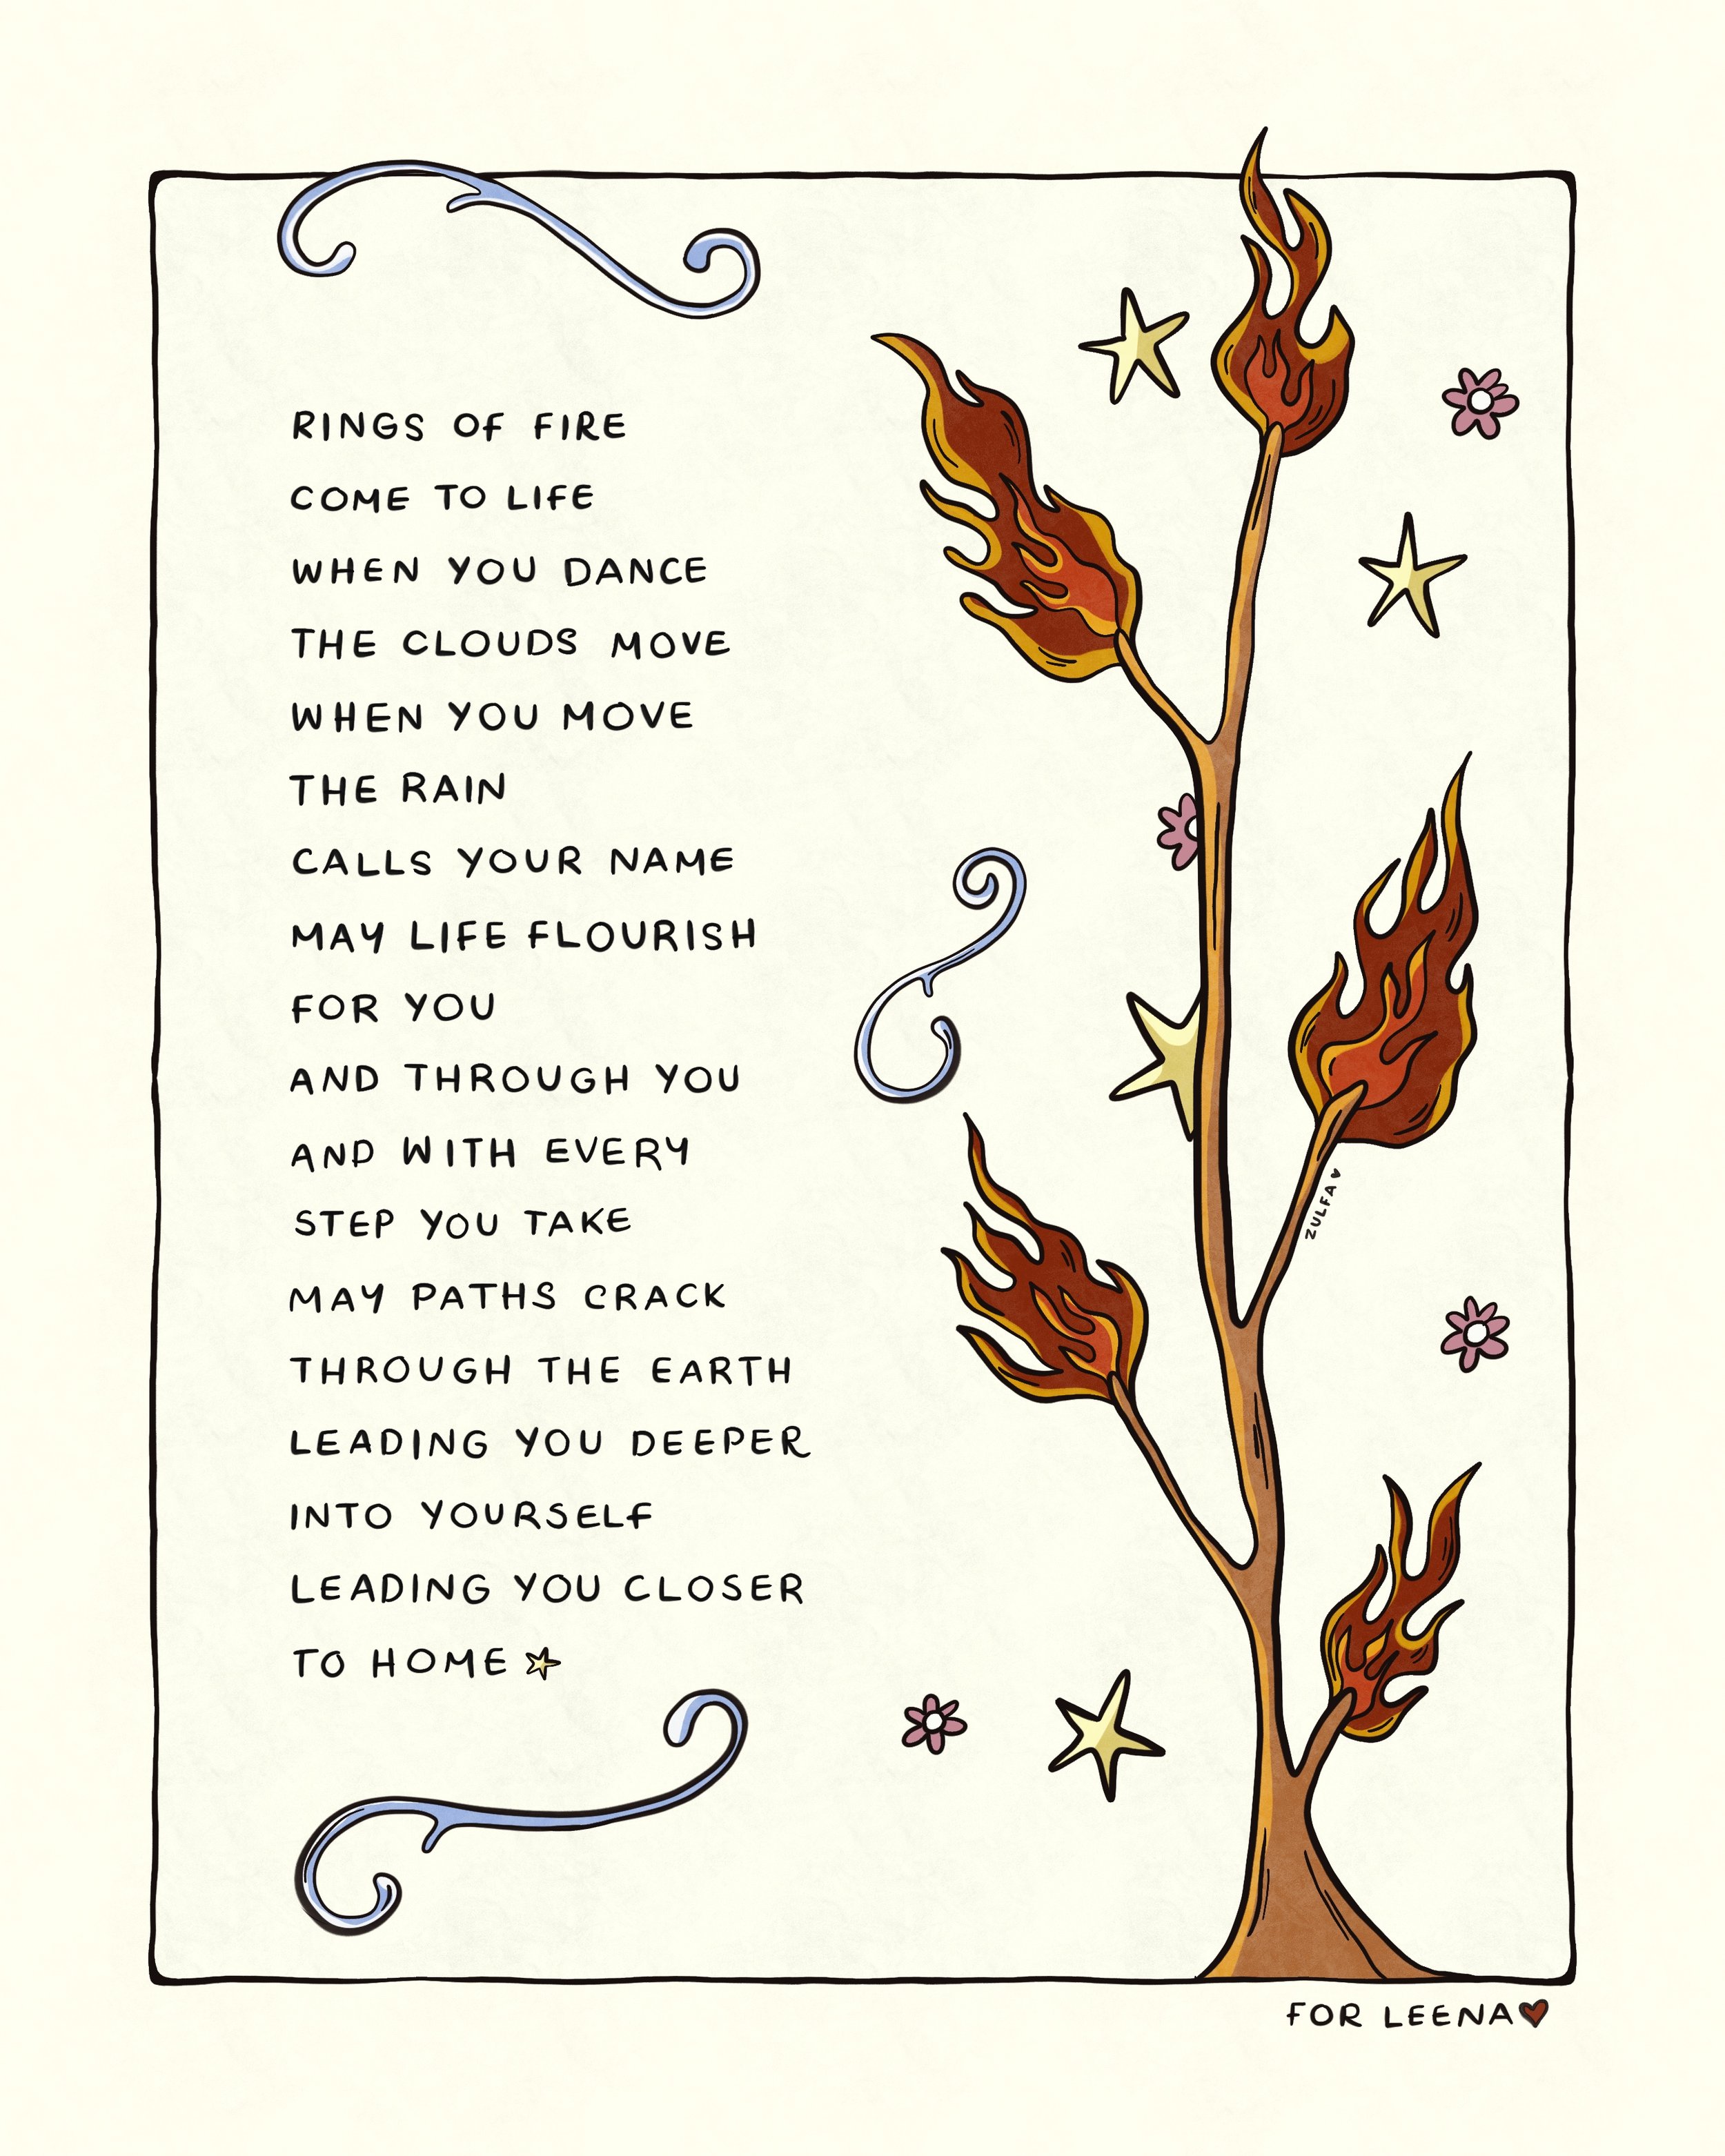 RINGS OF FIRE
COME TO LIFE
WHEN YOU DANCE
THE CLOUDS MOVE
WHEN YOU MOVE
THE RAIN
CALLS YOUR NAME
MAY LIFE FLOURISH
FOR YOU
AND THROUGH YOU
AND WITH EVERY
STEP YOU TAKE
MAY PATHS CRACK
THROUGH THE EARTH
LEADING YOU DEEPER
INTO YOURSELF
LEADING YOU CLOSER
TO HOME
ZULFA
FOR LEENA